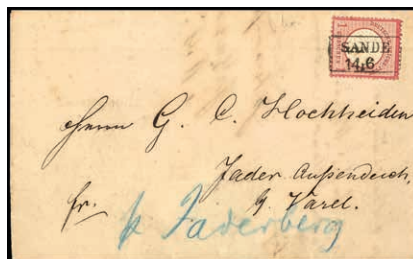 SANDE
14 6
Herrn G. C. Hochheiden
Jader Außendeich
fr. b/ Varel.
p Jaderberg